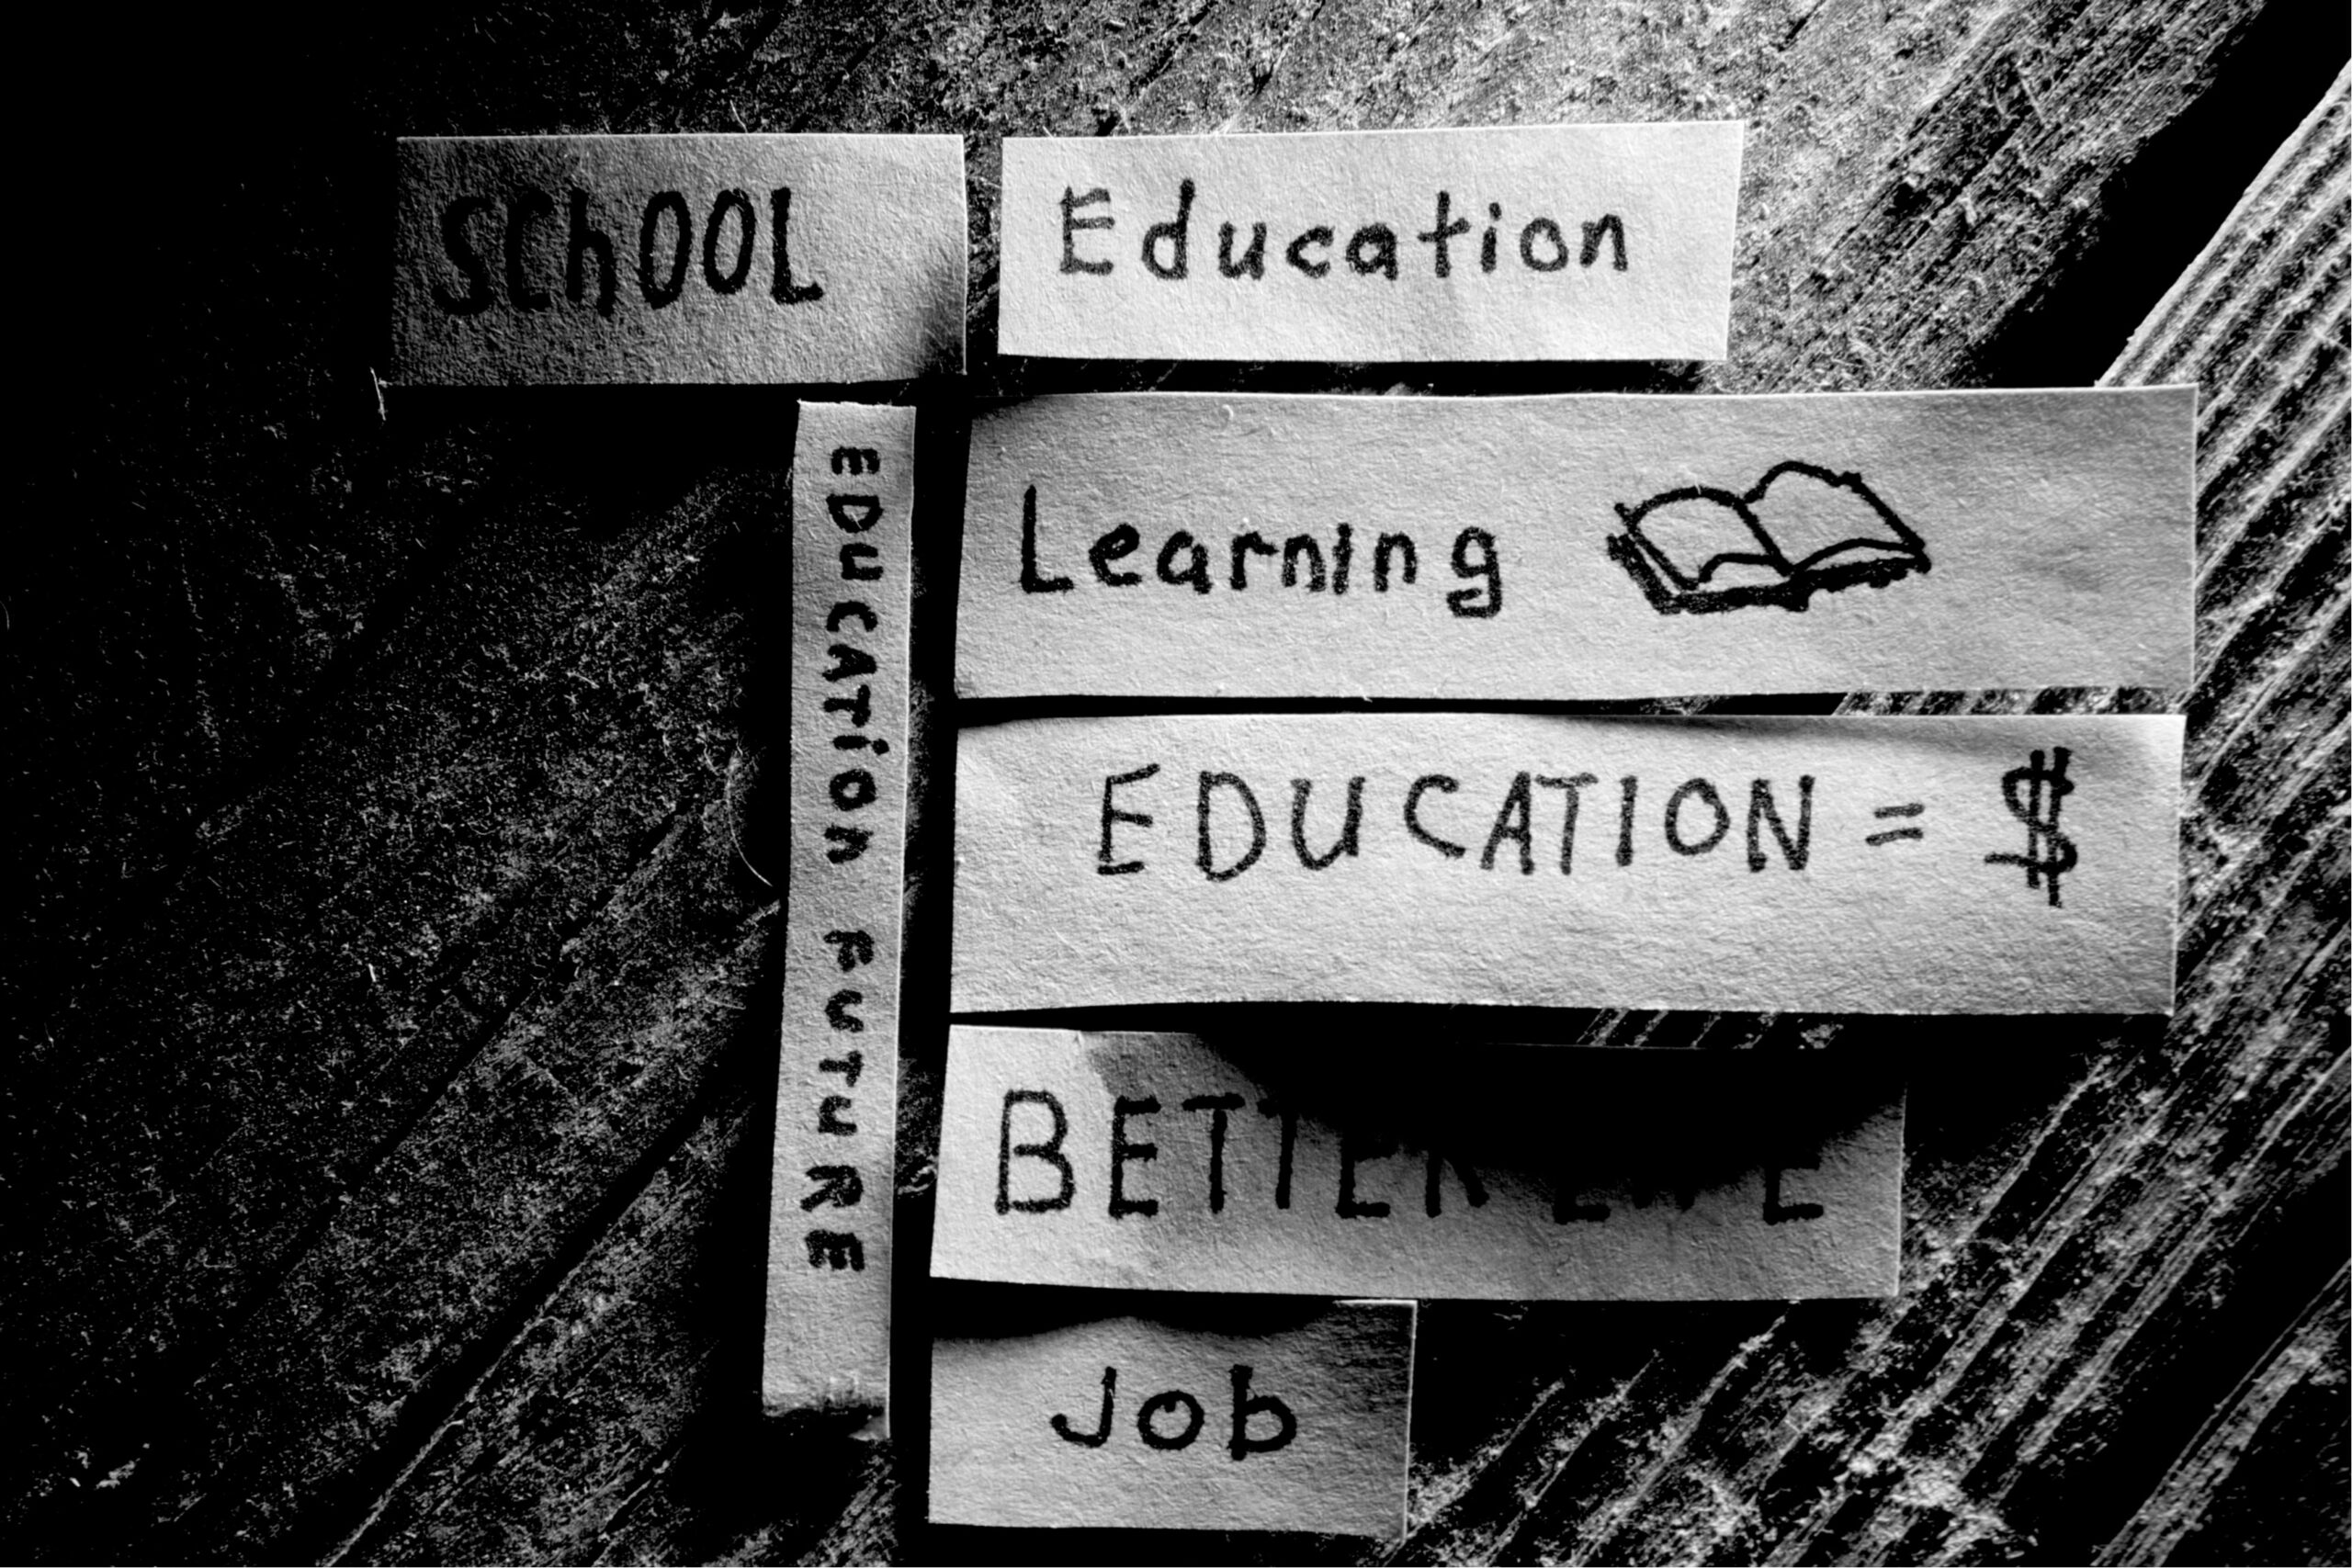 SChOOL
Education
EDUCATion FUTURE
Learning
EDUCATION = $
BETTER LIFE
Job